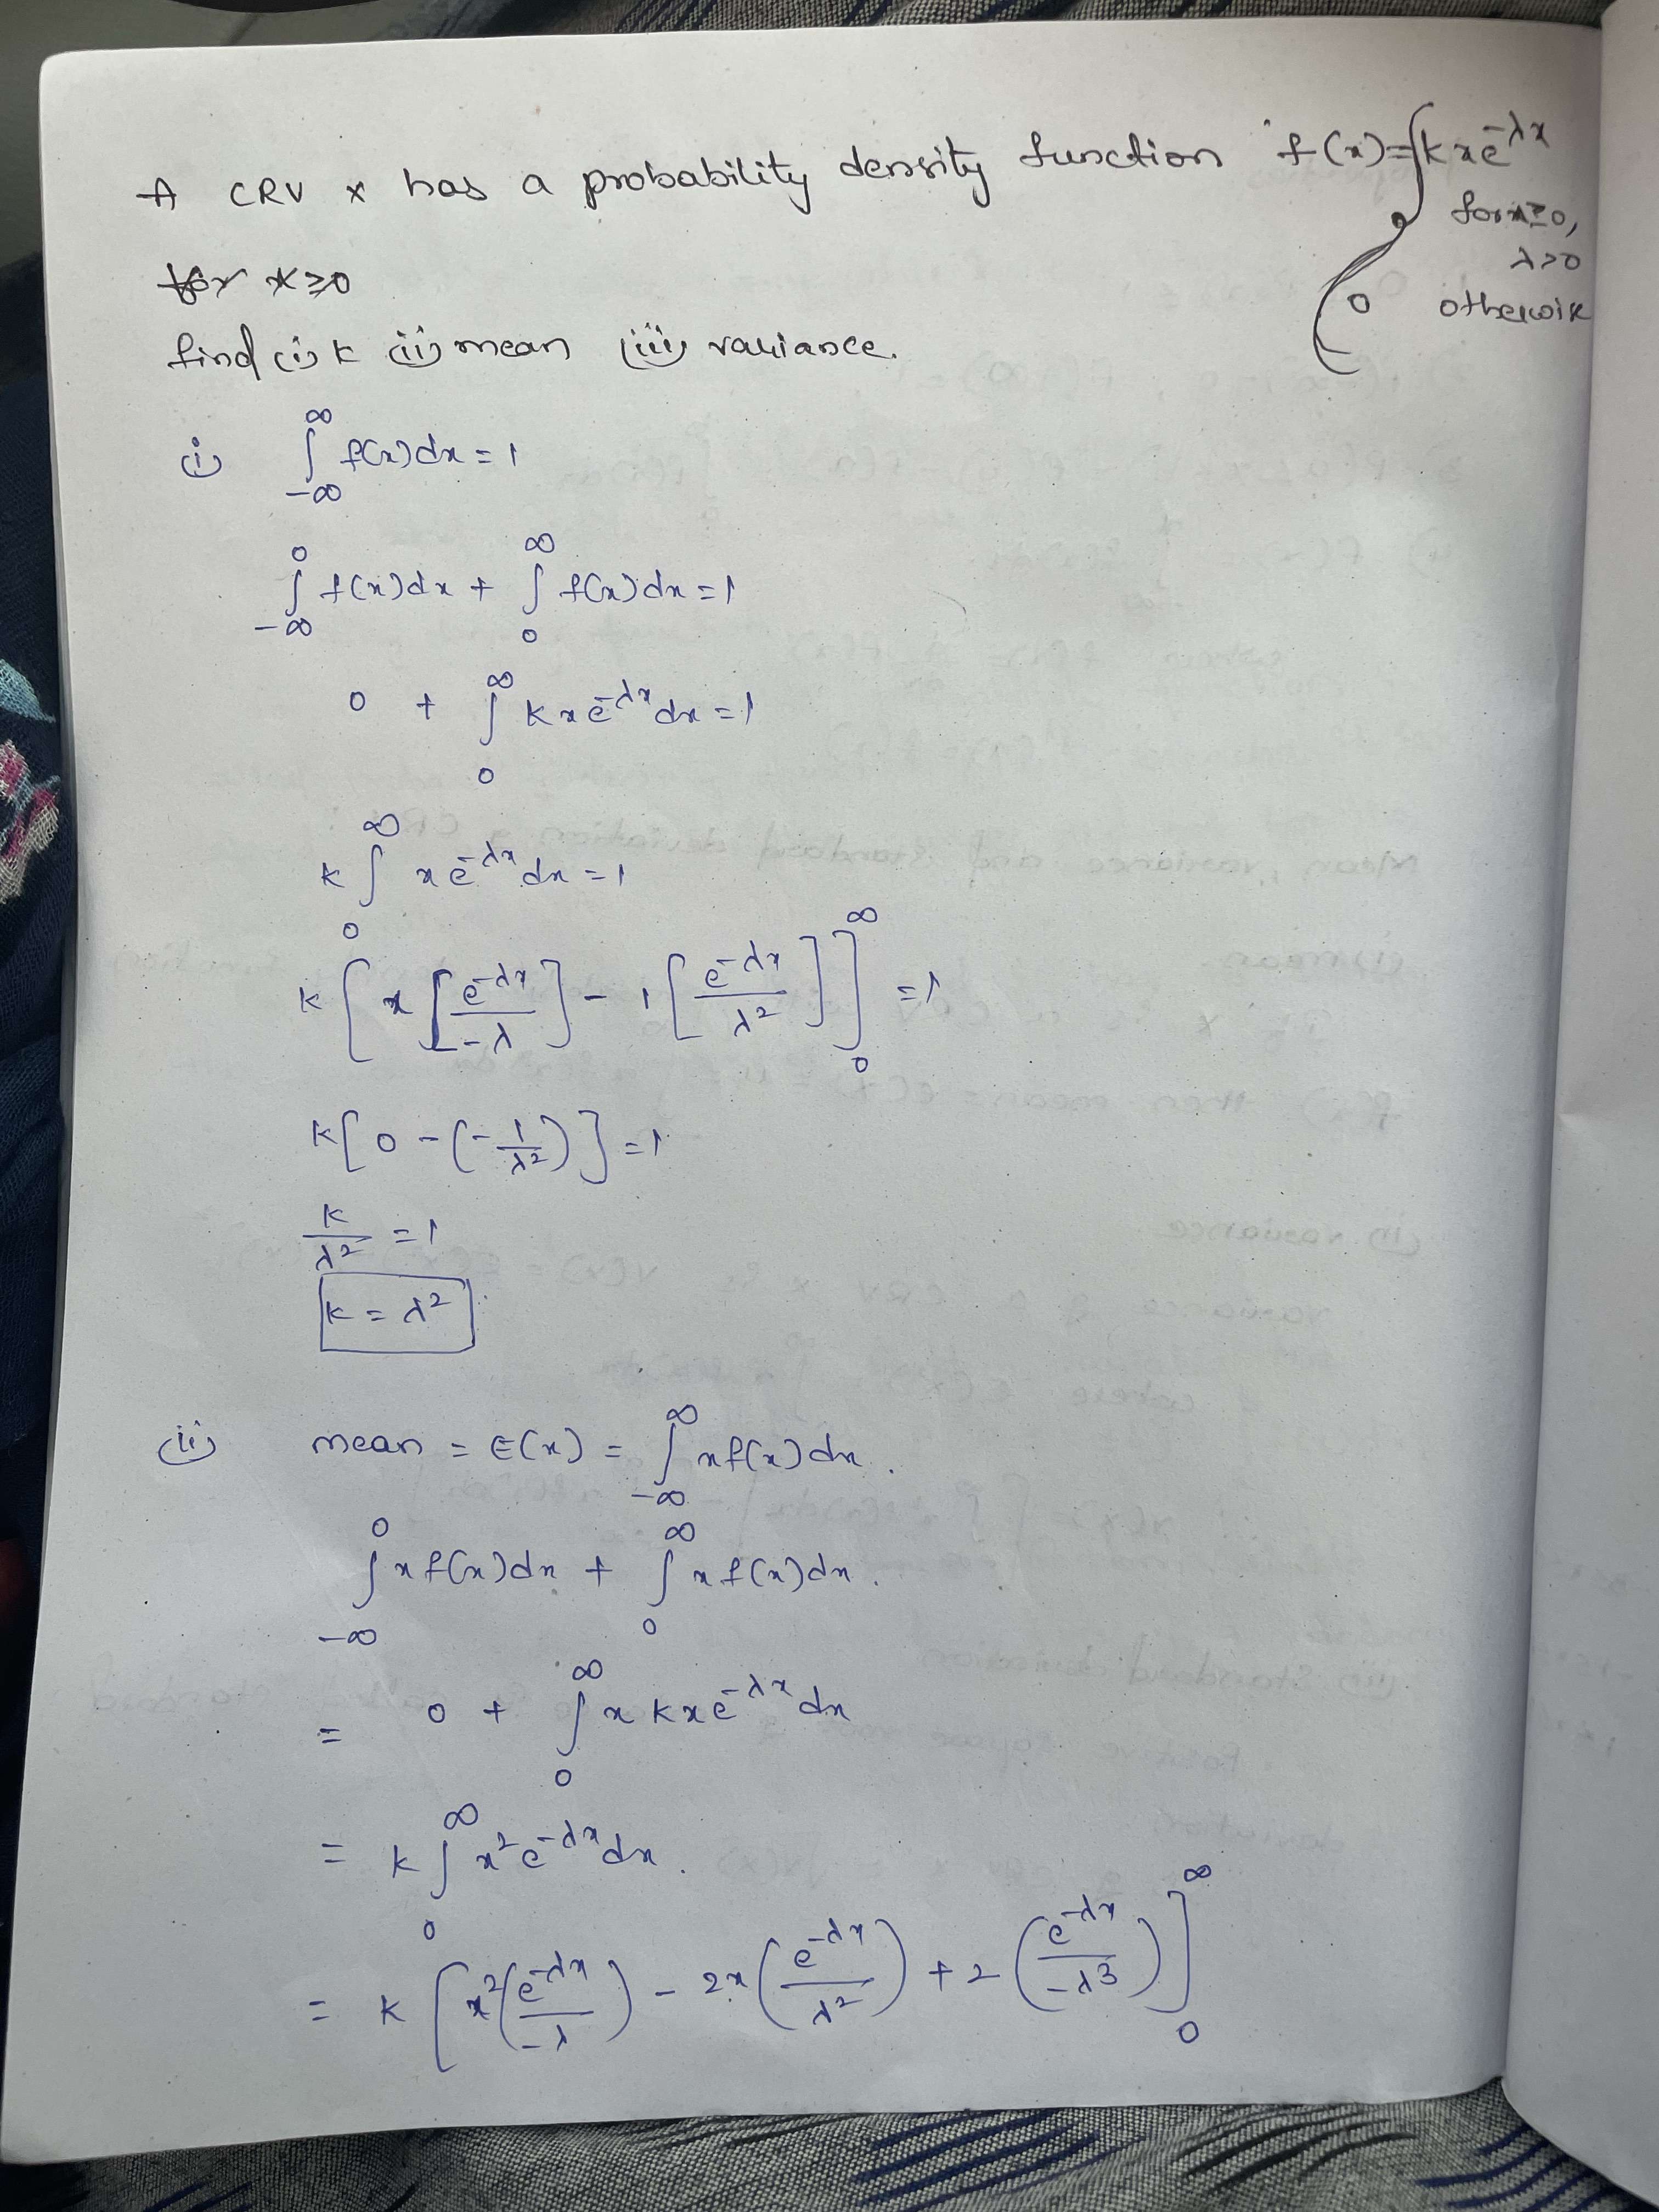 A CRV x has a probability density function f(x)={kxe^{-λx}
for x≥0,
λ>0
for x≥0
0 otherwise
find (i) k (ii) mean (iii) variance.
(i) ∫_{-∞}^{∞} f(x)dx=1
∫_{-∞}^{0} f(x)dx + ∫_{0}^{∞} f(x)dx=1
0 + ∫_{0}^{∞} kxe^{-λx}dx=1
k∫_{0}^{∞} xe^{-λx}dx=1
k[x[e^{-λx}/-λ]-1[e^{-λx}/λ²]]_{0}^{∞}=1
k[0-(-1/λ²)]=1
k/λ²=1
k=λ²
(ii) mean = E(x) = ∫_{-∞}^{∞} xf(x)dx.
∫_{-∞}^{0} xf(x)dx + ∫_{0}^{∞} xf(x)dx.
= 0 + ∫_{0}^{∞} x kxe^{-λx}dx
= k∫_{0}^{∞} x²e^{-λx}dx.
= k[x²(e^{-λx}/-λ)-2x(e^{-λx}/λ²)+2(e^{-λx}/-λ³)]_{0}^{∞}